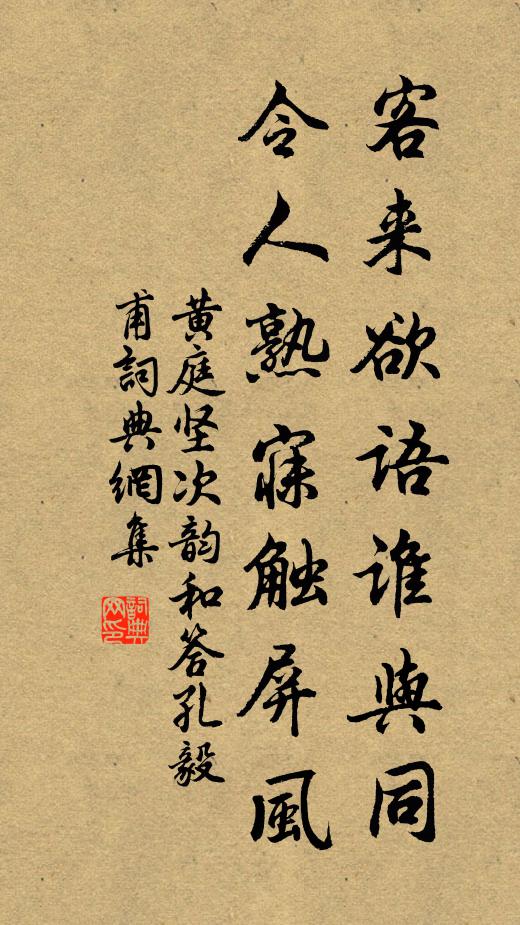 客来欲語谁與同
令人熟寐触屏風
黄庭坚次韵和答孔毅
甫詞典網集
詞典
网印